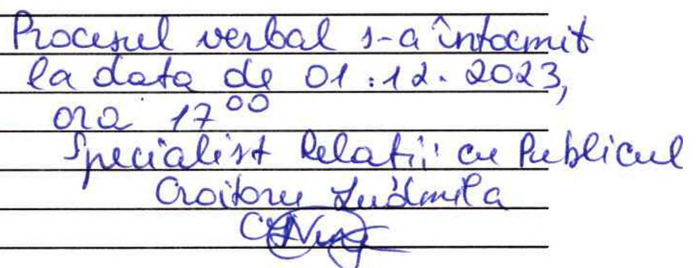 Procesul verbal s-a întocmit
la data de 01.12.2023,
ora 17⁰⁰
Specialist Relații cu Publicul
Croitoru Ludmila